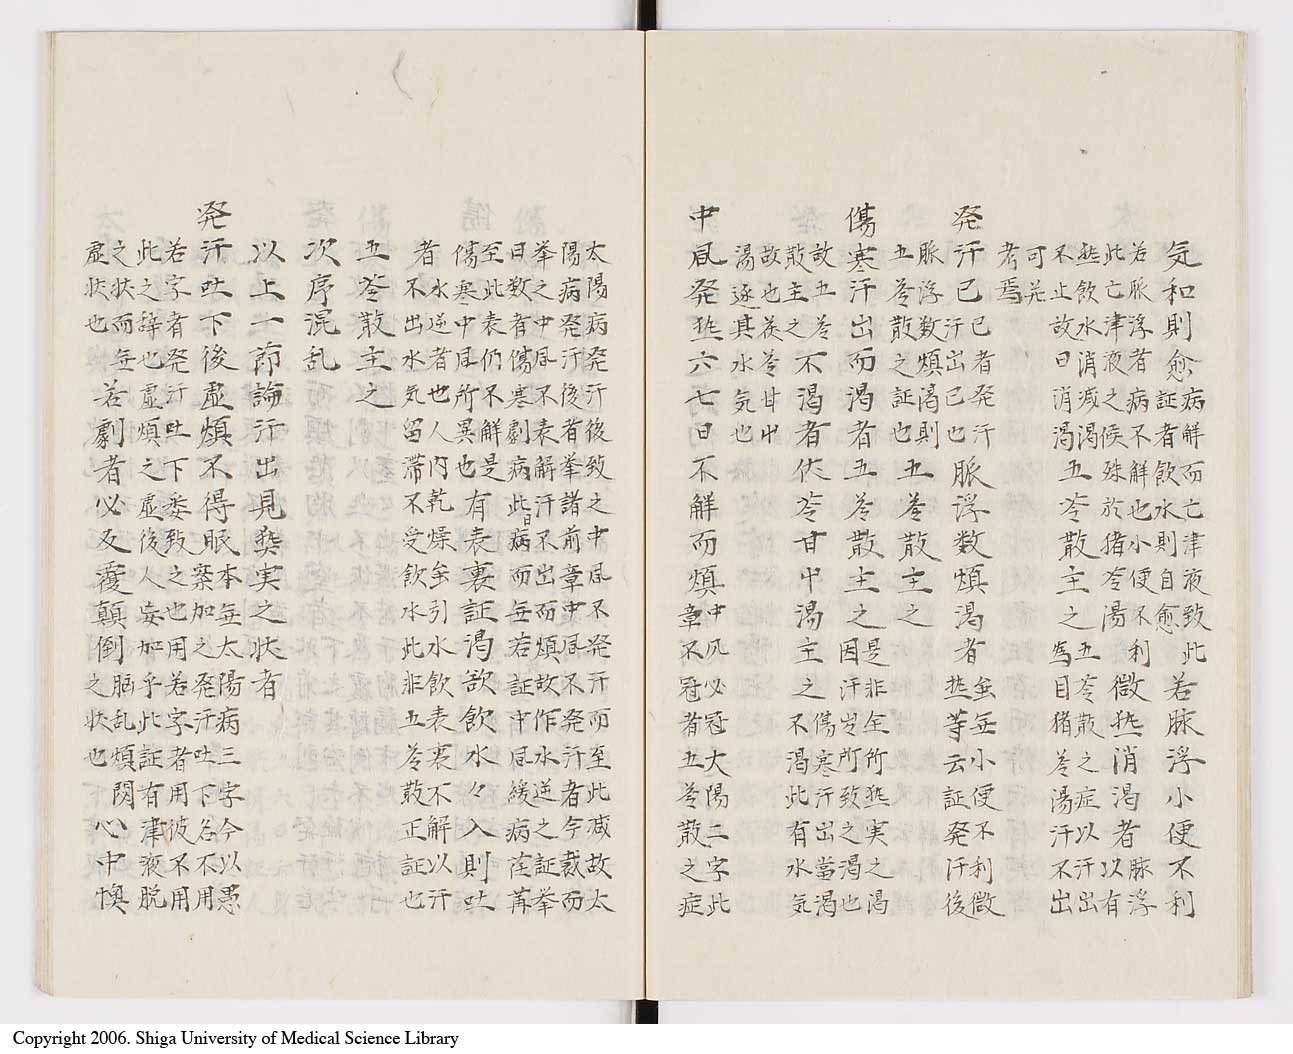 気和則愈
病解而亡津液致此
証者飲水則自愈
若脈浮小便不利
若脈浮者病不解也小便不利
此亡津液之候殊於猪苓湯
微熱消渇者
脈浮
以有
熱飲水消減渇
不止故曰消渇
五苓散主之
五苓散之症以汗出
為目猪苓湯汗不出
可并
考焉
発汗已
已者発汗
汗出已也
脈浮数煩渇者
虽無小便不利微
熱等云証発汗後
脈浮数煩渇則
五苓散之証也
五苓散主之
傷寒汗出而渇者五苓散主之
是非全所熱実之渇
因汗出所致之渇也
故五苓
散主之
不渇者茯苓甘中湯主之
傷寒汗出當渇
不渇此有水気
故也茯苓甘中
湯逐其水気也
中風発熱六七日不解而煩
中风必冠大陽三字此
章不冠者五苓散之症
太陽病発汗後致之中風不発汗而至此減故太
陽病発汗後者挙諸前章中風不発汗者今裁而
挙之中風不表解汗不出而煩故作水逆之証挙
日数者傷寒劇病此日病而無若証中風緩病荏苒
至此表仍不解是
傷寒中風所異也
有表裏証渇欲飲水々入則吐
者
水逆者也人内乾燥虽引水飲表裏不解以汗
不出水気留滞不受飲水此非五苓散正証也
五苓散主之
次序混乱
以上一節論汗出見熱実之状者
発汗吐下後虚煩不得眠
本無太陽病三字今以愚
案加之発汗吐下各不用
若字者発汗吐下委致之也用若字者用彼不用
此之辞也虚煩之虚後人妄加乎此証有津液脱
之状而無
虚状也
若劇者必反覆顛倒
胸乱煩悶
之状也
心中懊
Copyright 2006. Shiga University of Medical Science Library